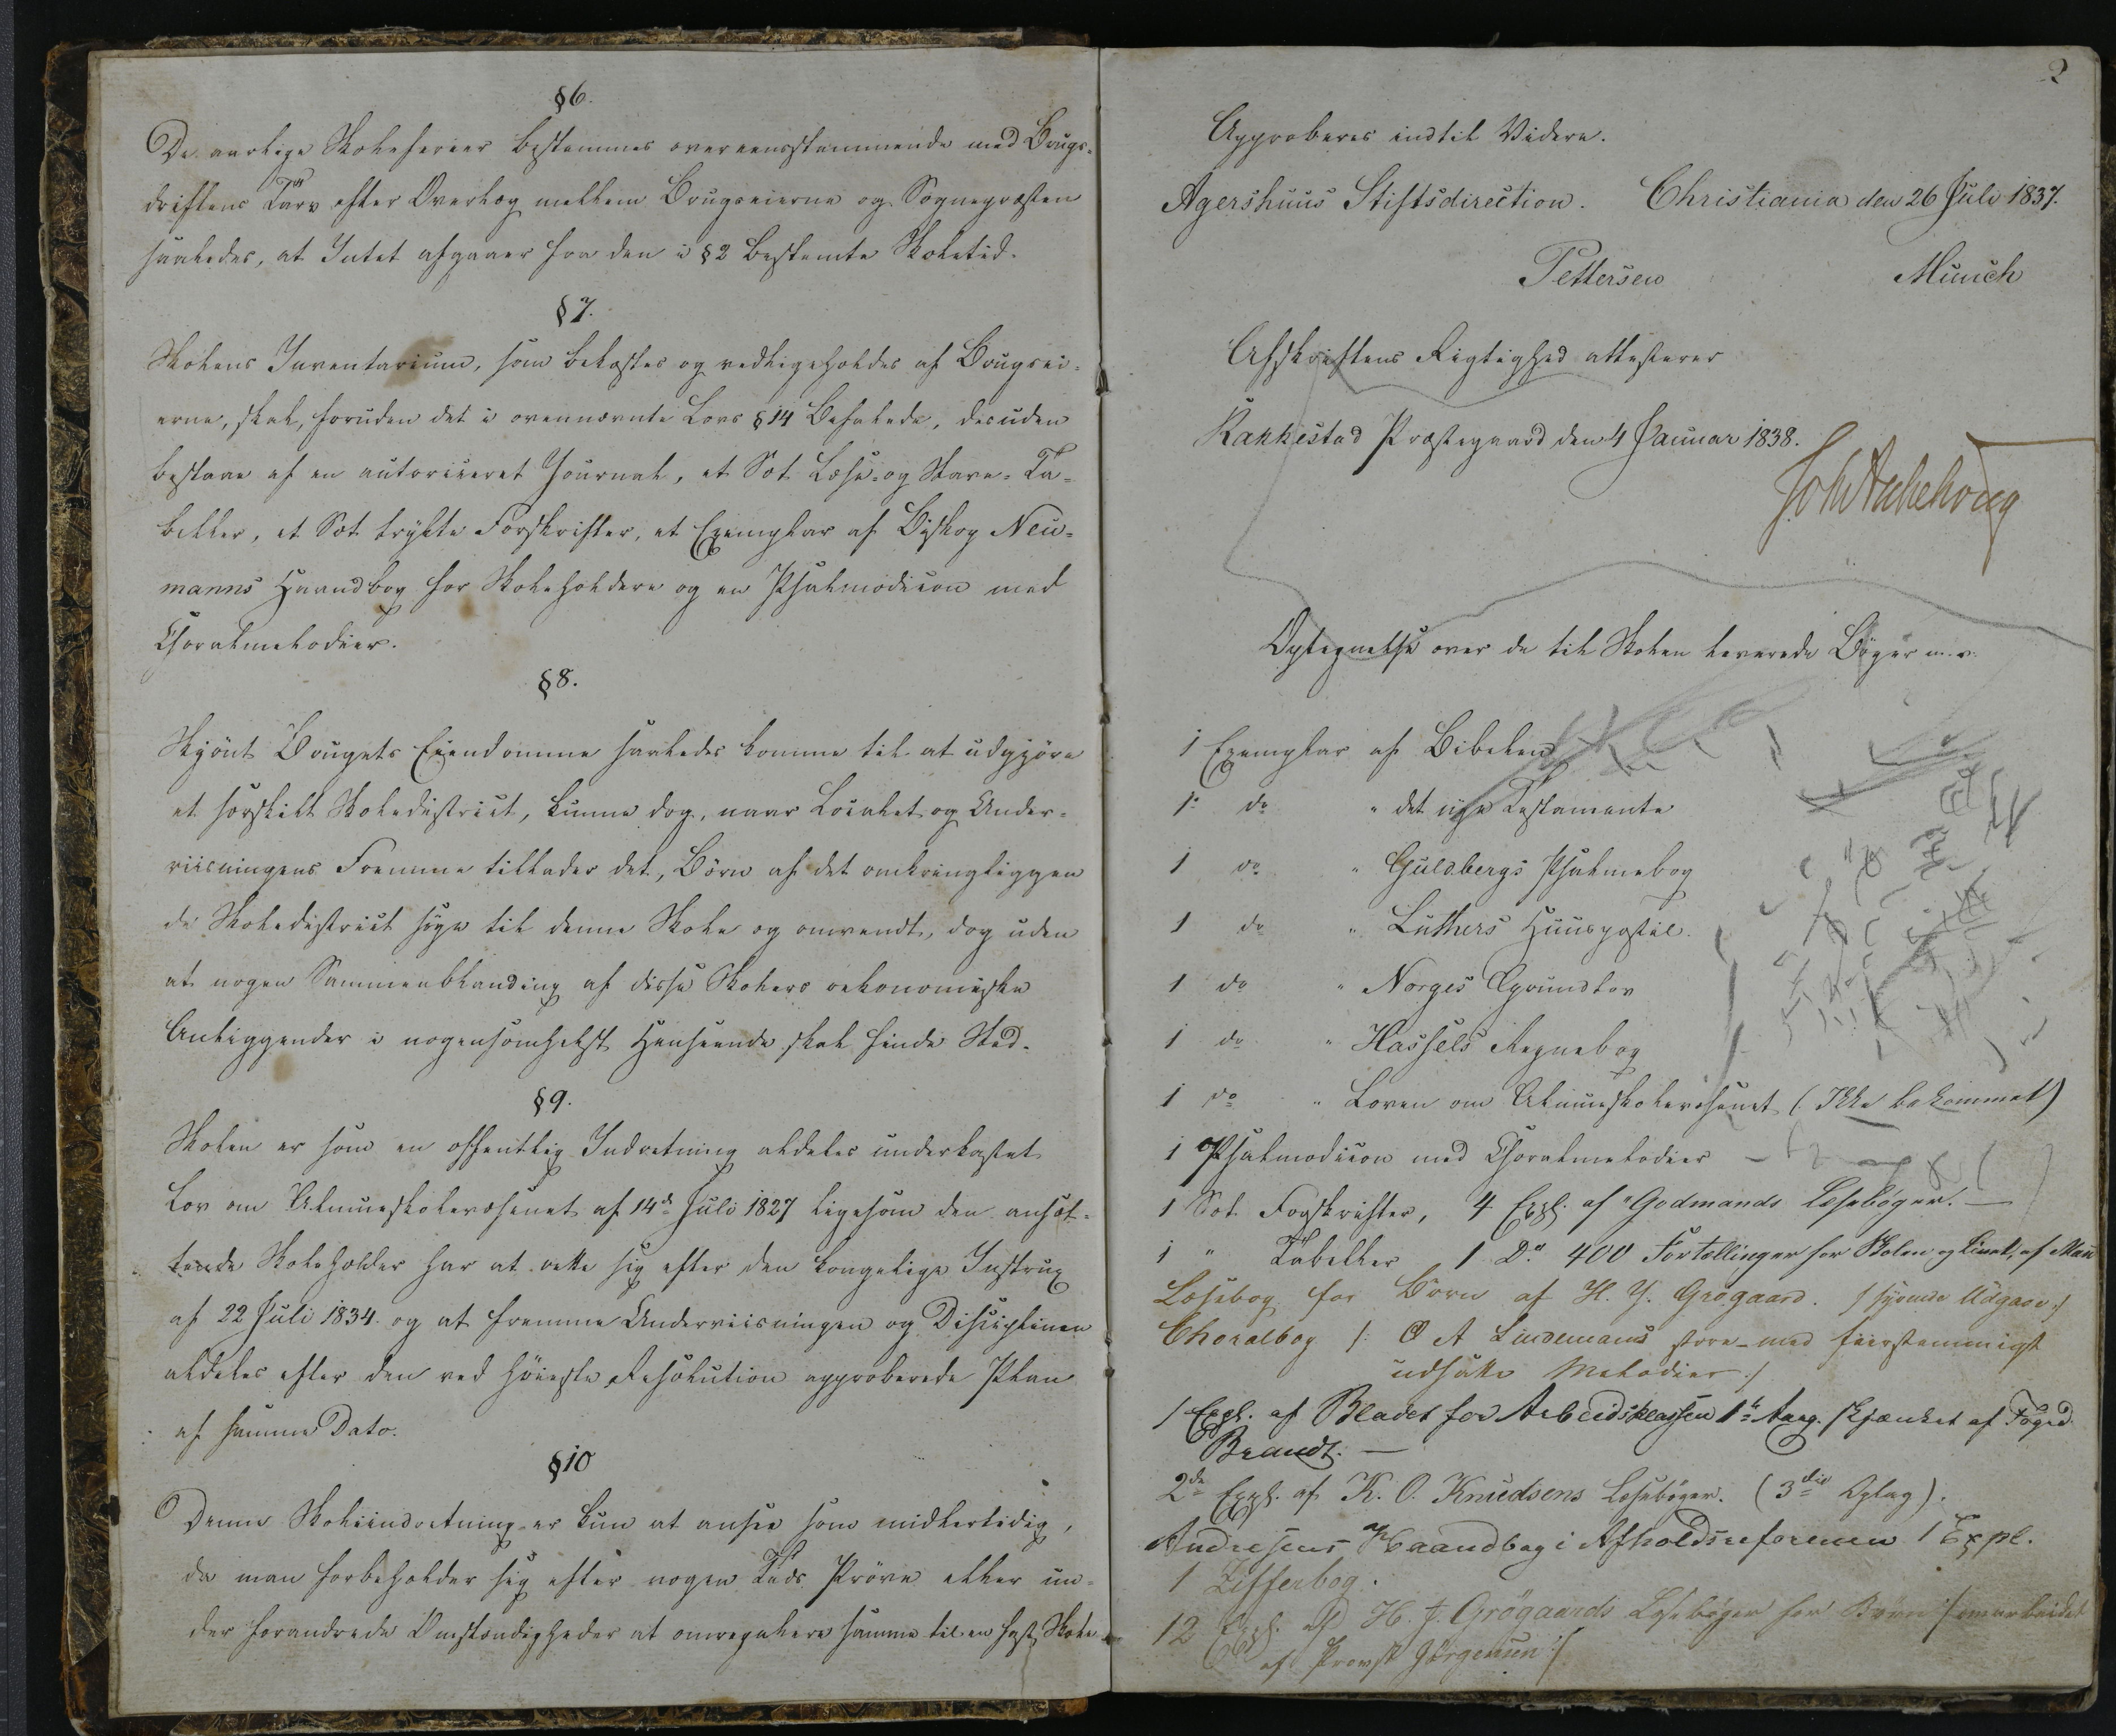 §6.
De aarlige Skoleferier bestemmes overeensstemmende med Brugs-
driftens Tarv efter Overlæg mellem Brugseierne og Sognepræsten
saaledes, at Intet afgaaer fra den i §2 bestemte Skoletid.
§7.
Skolens Inventarium, som bekostes og vedligeholdes af Brugsei-
erne, skal, foruden det i ovennævnte Lovs §14 Befalede, desuden
bestaae af en autoriseret Journal, et Sæt Læse- og Stave-Ta-
beller, et Sæt trykte Forskrifter, et Exemplar af Biskop Neu-
manns Haandbog for Skoleholdere og en Psalmodicon med
Choralmelodier.
§8.
Skjönt Brugets Eiendomme saaledes komme til at udgjöre
et særskilt Skoledistrict, kunne dog, naar Localet og Under-
viisningens Fremme tillader det, Börn af det omkringliggen
de Skoledistrict söge til denne Skole og omvendt, dog uden
at nogen Sammenblanding af disse Skolers oekonomiske
Anliggender i nogensomhelst Henseende skal finde Sted.
§9.
Skolen er som en offentlig Indretning aldeles underkastet
Lov om Almueskolevæsenet af 14de Juli 1827 ligesom den ansæt-
tende Skoleholder har at rette sig efter den kongelige Instrux
af 22 Juli 1834 og at fremme Underviisningen og Disciplinen
aldeles efter den ved höieste Resolution approberede Plan
af samme Dato.
§10
Denne Skoleindretning er kun at ansee som midlertidig,
da man forbeholder sig efter nogen Tids Pröve eller un-
der forandrede Omstændigheder at omregulere samme til en fast Skole
2
Approberes indtil Videre.
Agershuus Stiftsdirection. Christiania den 26 Juli 1837.
Pettersen Munch
Afskriftens Rigtighed attesterer
Rakkestad Præstegaard den 4 Januar 1838.
Optegnelse over de til Skolen leverede Böger m.v.
1 Exemplar af Bibelen
1 do " det nye Testamente
1 do " Guldbergs Psalmebog
1 do " Luthers Huuspostil.
1 do " Norges Grundlov
1 do " Hassels Regnebog
1 do " Loven om Almueskolevæsenet (Ikke bekommet)
1 Psalmodicon med Choralmelodier
1 Sæt Forskrifter, 4 Expl. af "Godmands Læsebøger. —
1 " Tabeller 1 Do. 400 Fortællinger for Skolen og Livet, af Mau
Læsebog for Börn af H. J. Grøgaard. /: syvende Udgave :/
Choralbog /: O A Lindemans store med fiirstemmigt
udsatte Melodier :/
1 Expl. af Bladet for Arbeidsklassen 1ste Aarg. skjænket af Foged
Brandt. —
2de Expl. af K. O. Knudsens Læsebøger. (3die Oplag).
Andresens Haandbog i Afholdsreformen 1 Expl.
1 Zifferbog.
12 Expl. af H. J. Grögaards Læsebøger for Börn /: omarbeidet
af Provst Jörgensen :/